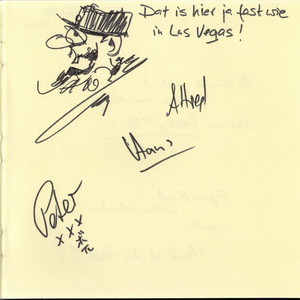 Dat is hier ja fast wie
in Las Vegas!
Alfred
Hans
Peter
x x x